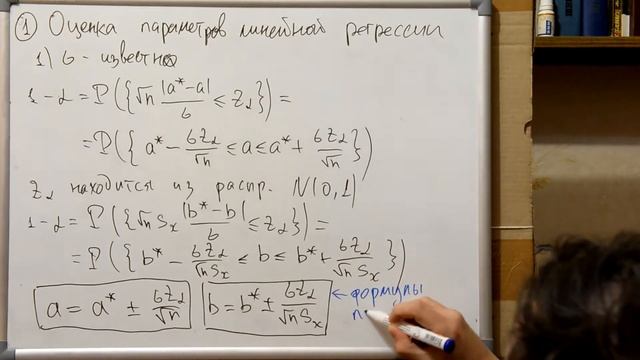 ① Оценка параметров линейной регрессии
1) σ - известно
1-α = P({√n |a*-a|/σ ≤ z_α}) =
= P({a* - σz_α/√n ≤ a ≤ a* + σz_α/√n})
z_α находится из распр. N(0,1)
1-α = P({√n S_x |b*-b|/σ ≤ z_α}) =
= P({b* - σz_α/(√n S_x) ≤ b ≤ b* + σz_α/(√n S_x)})
a = a* ± σz_α/√n b = b* ± σz_α/(√n S_x) ← формулы